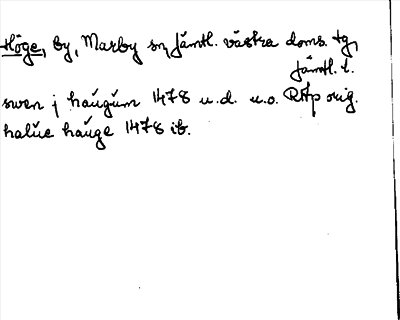 Höge, by, Marby sn, Jämtl. västra doms. tg,
Jämtl. l.
swen j haughum 1478 u.d. u.o. RAp orig.
halue hauge 1478 ib.